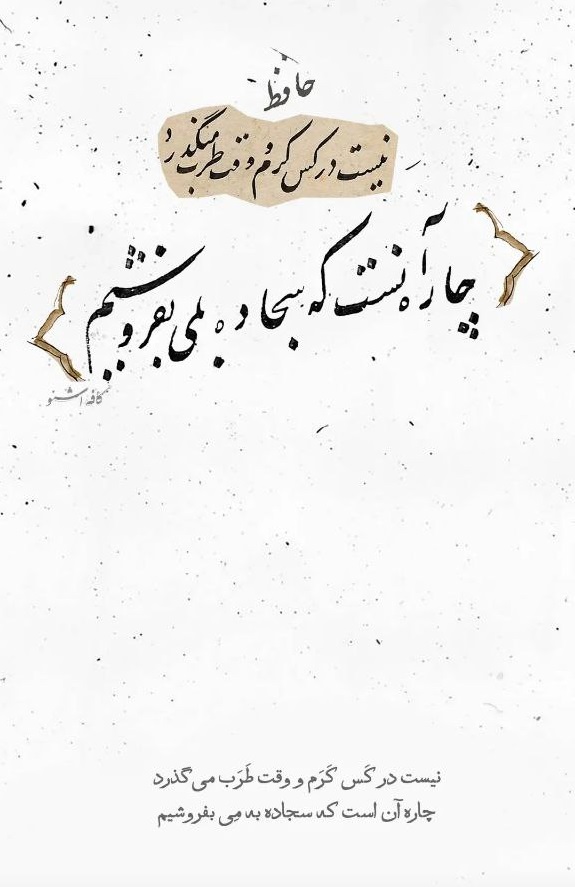 حافظ
نیست در کس کرم و وقت طرب میگذرد
چاره آنست که سجاده بمی بفروشیم
کافه اشنو
نیست در کَس کَرَم و وقت طَرَب می‌گذرد
چاره آن است که سجاده به مِی بفروشیم